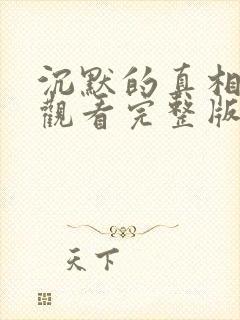 沉默的真相
觀看完整版
天下